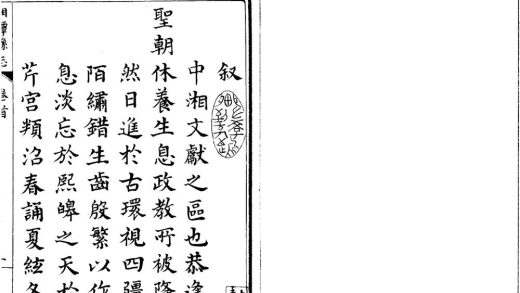 叙
中湘文獻之區也恭逢
聖朝休養生息政教所被隆
然日進於古環視四疆
陌繡錯生齒殷繁以作
息淡忘於熙皞之天於
芹宮頖沼春誦夏絃冬
湘潭縣志 卷首